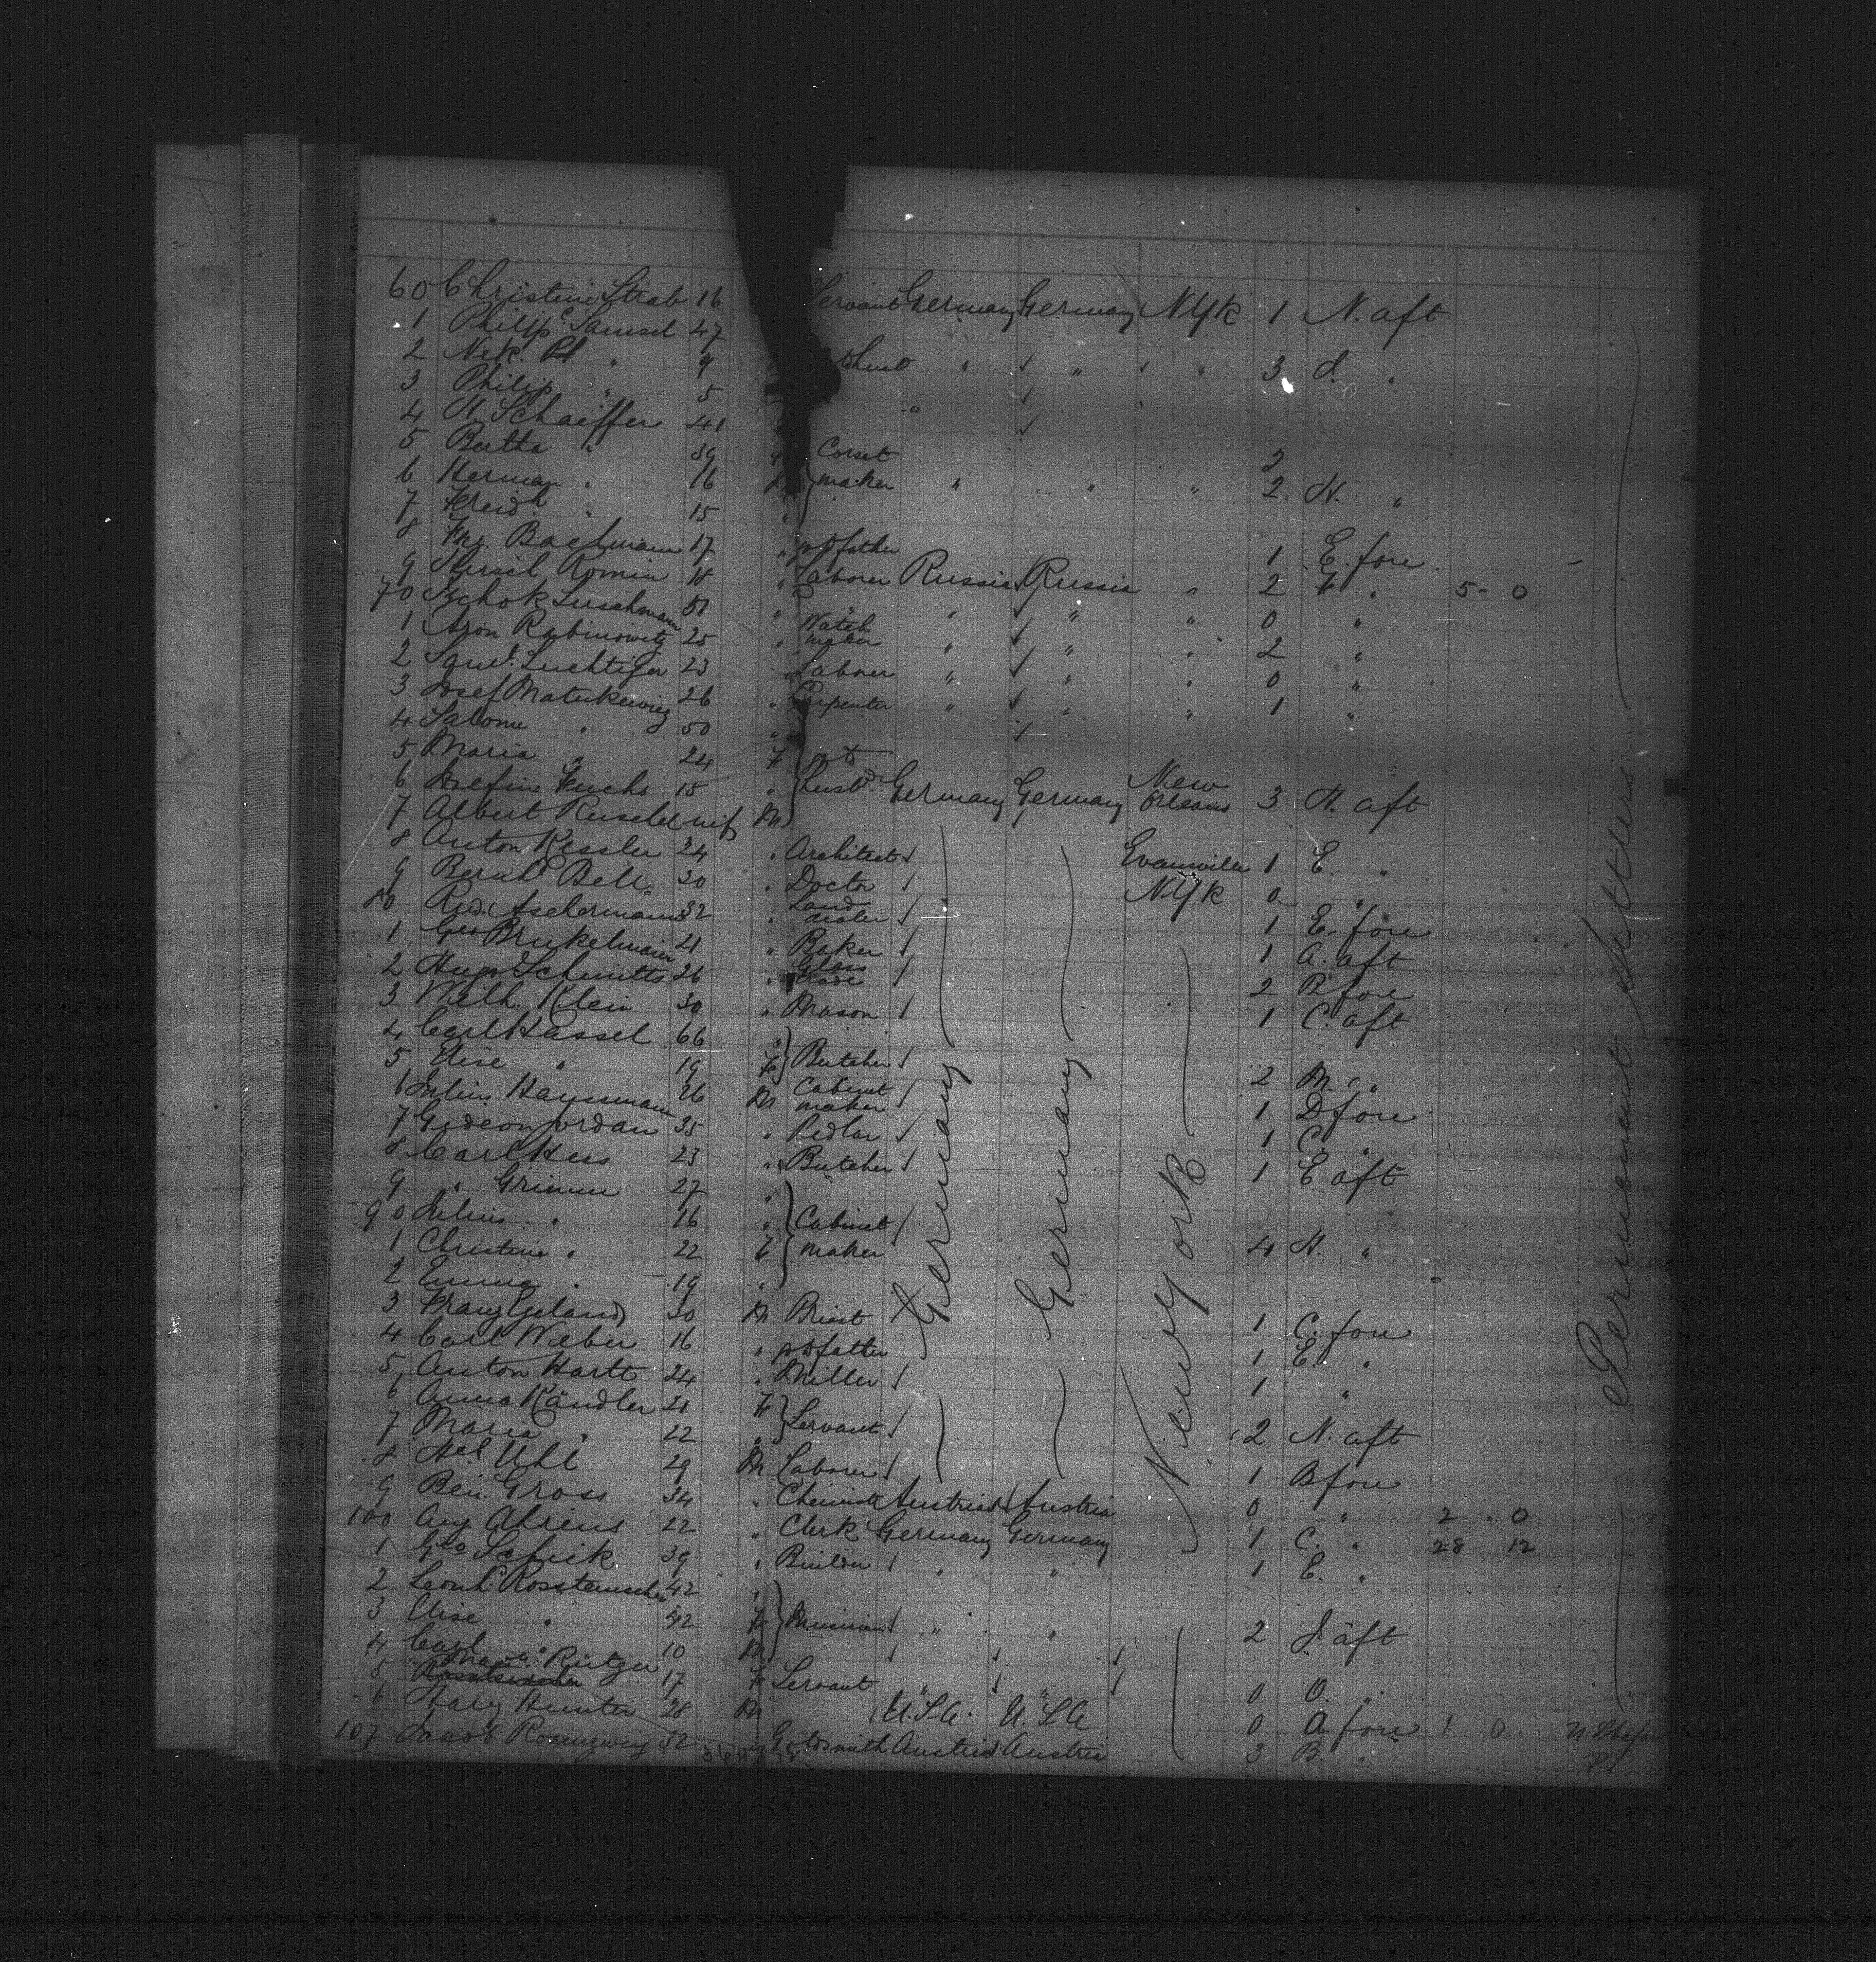 60 Christine Strab 16 Servant Germany Germany N.Yk 1 N. aft
1 Philipp Samsel 47
2 Nik. " 9 " " " 3 J. "
3 Philip " 5 "
4 H. Schaeffer 41
5 Bertha " 39 Corset 2
6 Herman " 16 maker " " " 2 N. "
7 Freidh " 15 "
8 Frz. Bachmann 17 " father 1 E. fore
9 Hersch Romin 18 " Laborer Russia Russia " 2 F " 5 - 0
70 Luschmann 51 " " " " 0 "
1 Aron Rabinowitz 25 " Watch maker " " " 2 "
2 Saml. Luchtiger 23 " Laborer " " " 0 "
3 Josef 26 " Carpenter " " " 1 "
4 Salome " 50 "
5 Maria " 24 F
6 Josefine Fuchs 18 " Germany Germany New Orleans 3 H. aft
7 Albert M
8 Anton Kessler 24 " Architect Evansville 1 E. "
9 Bernh. 30 " Doctor N.Yk 0 "
80 Rud. Aschermann 32 " Land dealer 1 E. fore
1 Geo 21 " Baker 1 A. aft
2 Hugo Schmitts 26 " Glass trade 2 B fore
3 Wilh. Klein 30 " Mason 1 C. aft
4 Carl Hassel 66 "
5 Elise " 19 F Butcher 2 M. "
6 Julius Haussmann 26 M Cabinet maker 1 D fore
7 Gideon Jordan 35 " Pedlar 1 C. "
8 Carl Hess 23 " Butcher 1 E aft
9 " Grimm 27 "
90 Julius " 16 " Cabinet
1 Christine " 22 F maker 4 H. "
2 Emma " 19 "
3 Franz 30 M Priest 1 C. fore
4 Carl Weber 16 " father 1 E. "
5 Anton Hartt 24 " Miller 1 "
6 Anna Kandler 21 F
7 Maria " 22 " Servant 2 N. aft
8 Uhl 29 M Laborer 1 B fore
9 Ben. Gross 34 " Chemist Austria Austria 0 " 2 " 0
100 Aug Ahrens 22 " Clerk Germany Germany 1 C. " 28 12
1 Geo Schick 39 " Builder " " 1 E. "
2 Leonh. 42 "
3 Elise " 42 F Musician " " 2 J. aft
4 Carl " 10 M
5 Rutger 17 F Servant " " 0 O. "
6 Harry Hunter 28 M U.S.A. U.S.A 0 A. fore 1 0
107 Jacob 32 " Goldsmith Austria Austria 3 B. "
Germany
Germany
New York
Permanent Settlers